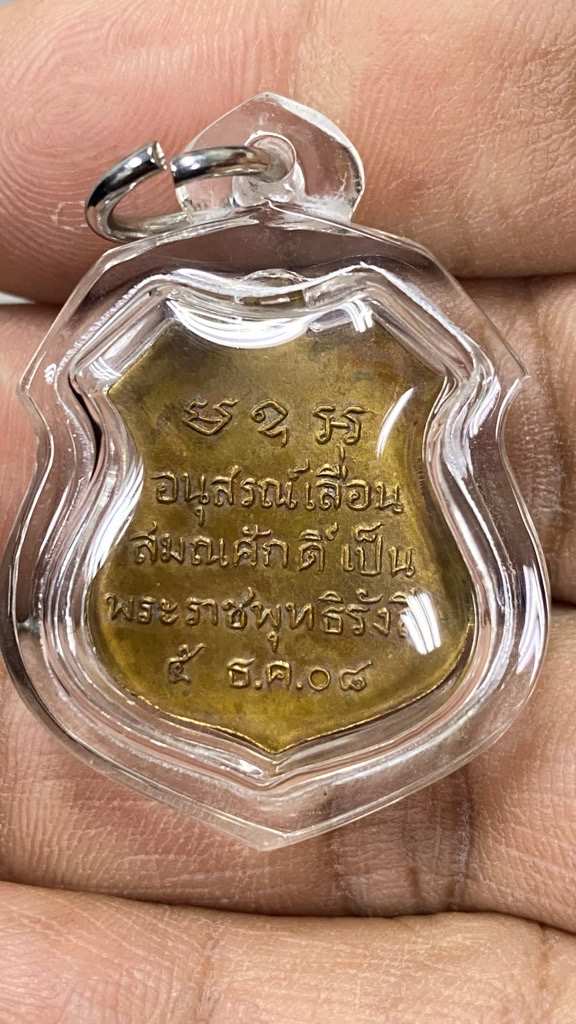 อนุสรณ์เลื่อน
สมณศักดิ์เป็น
พระราชพุทธิรังสี
๕ ธ.ค.๐๘